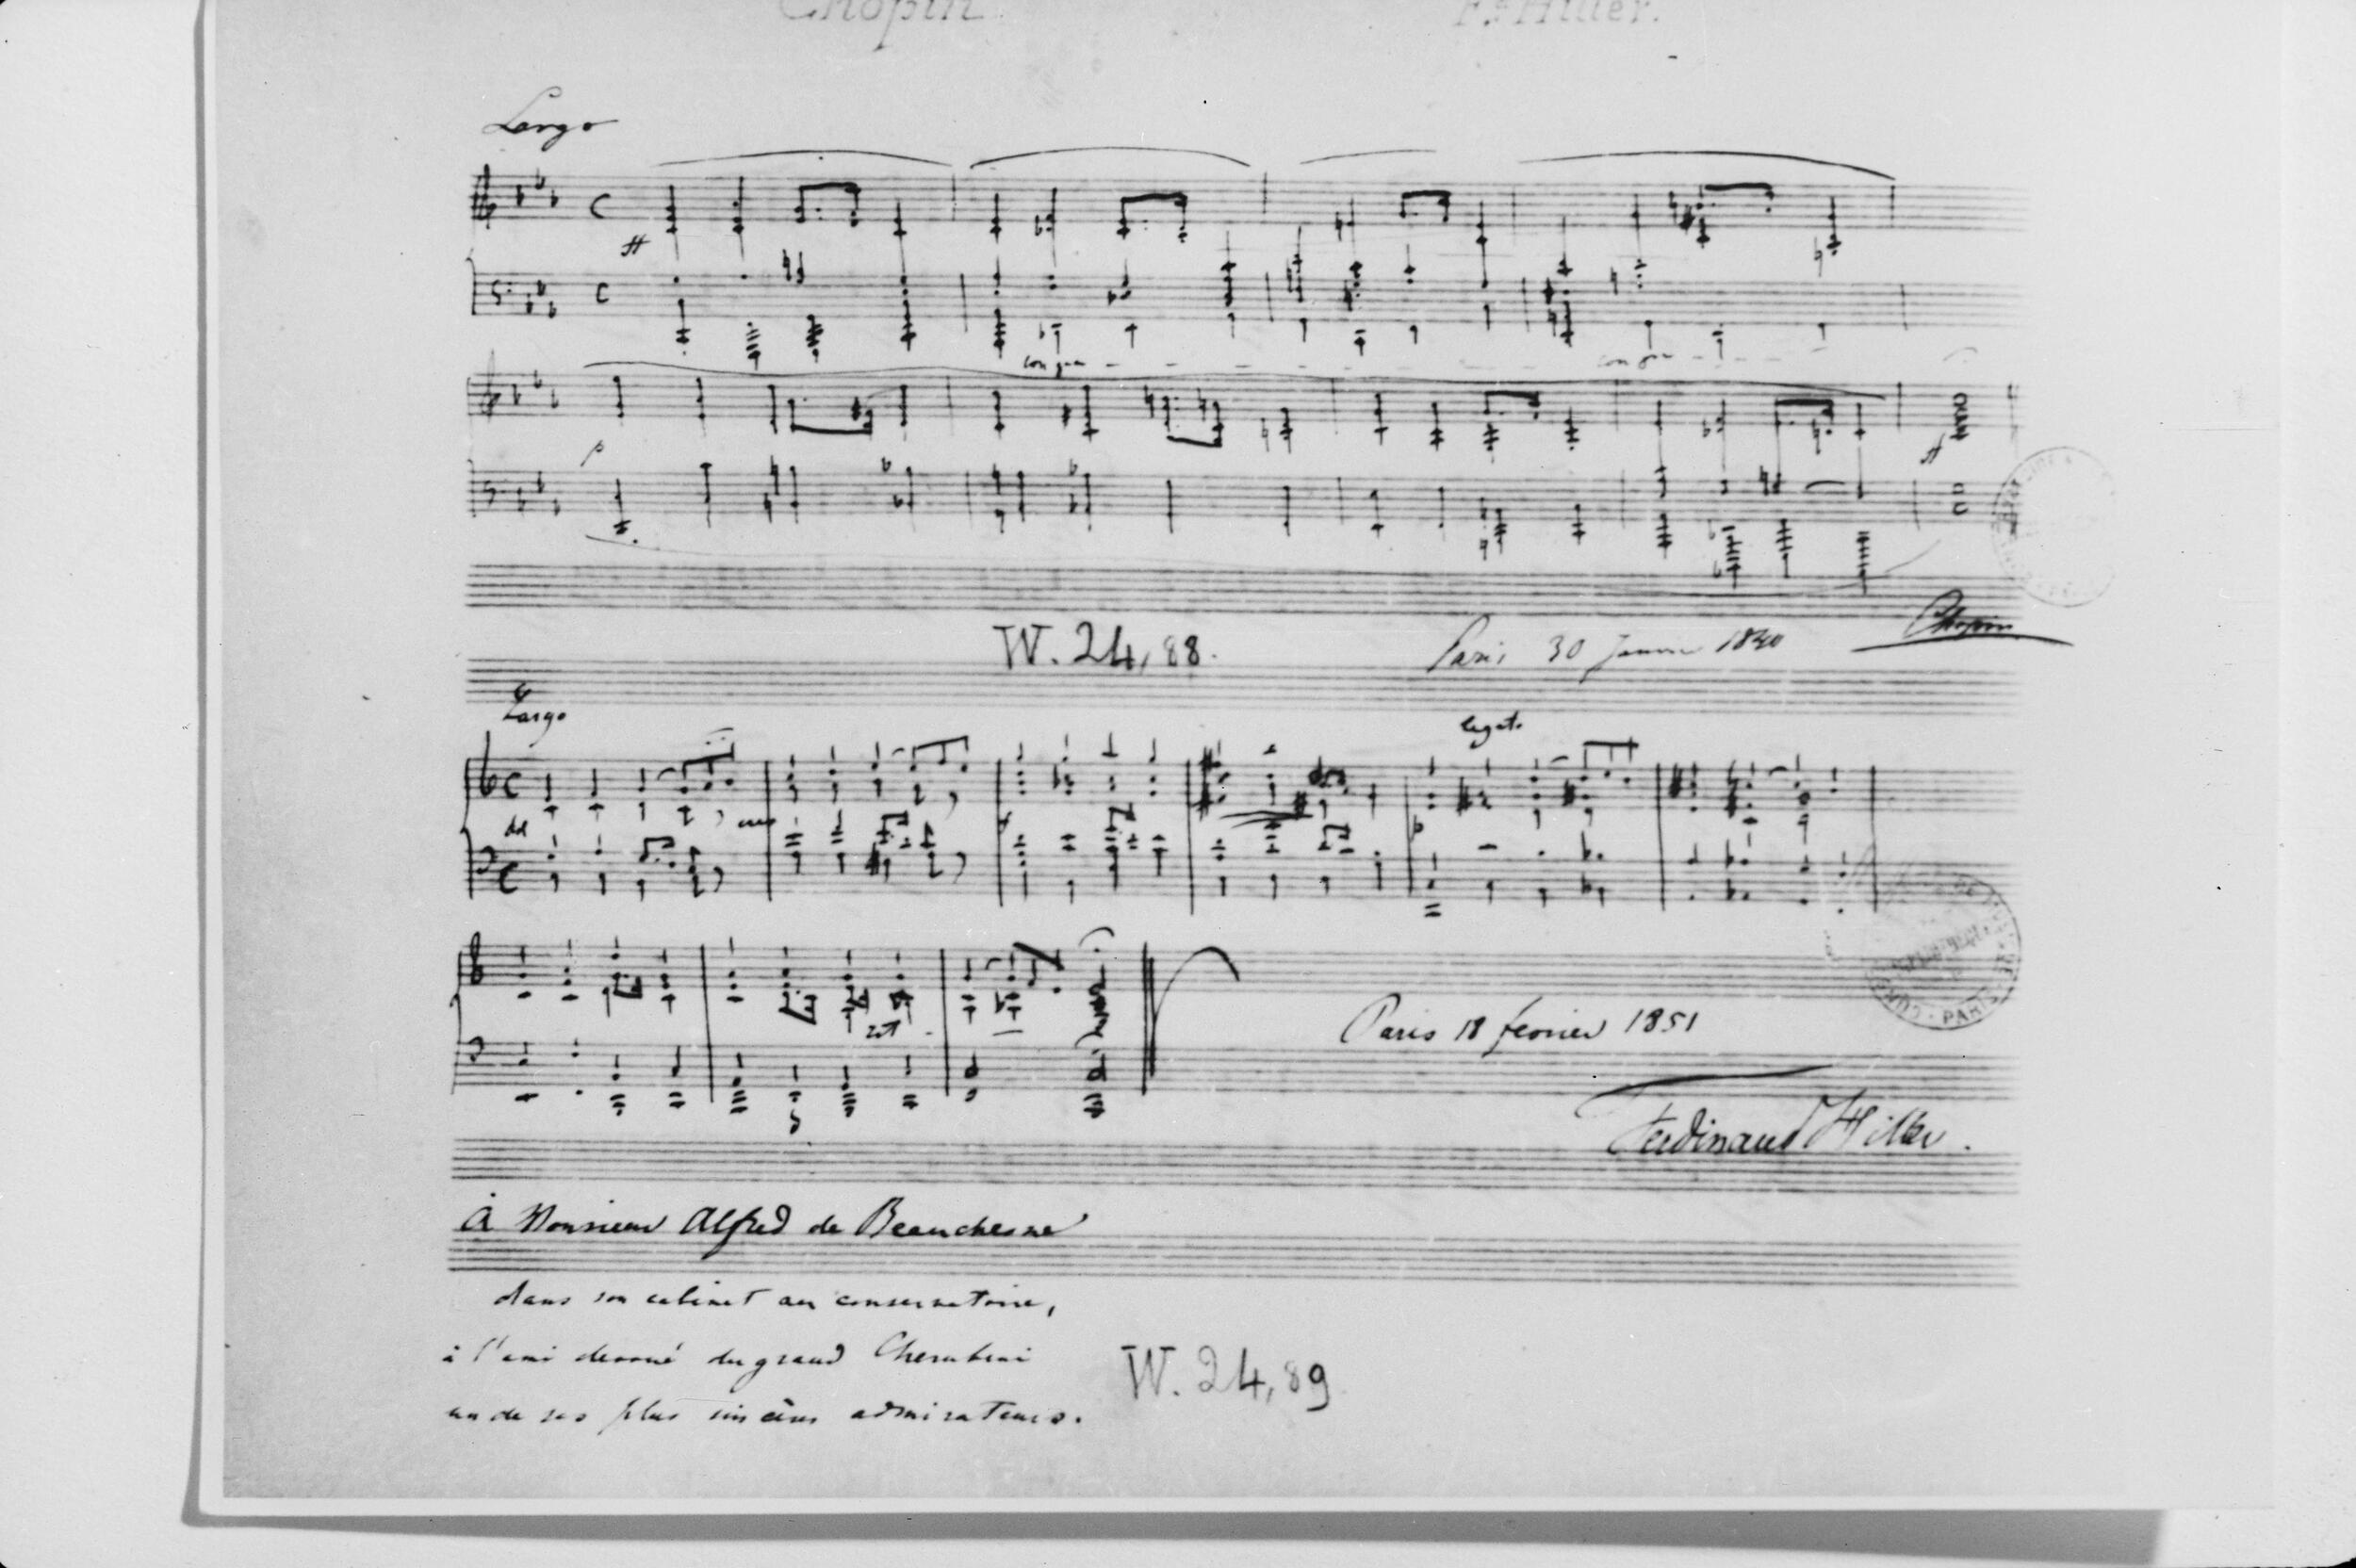 Chopin F. Hiller.
Largo
C
ff
C
con 8va
con 8va
p
ff
W. 24,88.
Paris 30 Janvier 1840
Chopin
Largo
legato
C
cres
C
rit
Paris 18 fevrier 1851
Ferdinand Hiller.
à Monsieur Alfred de Beauchesne
dans son cabinet au conservatoire,
à l'ami devoué du grand Cherubini
un de ses plus sincères admirateurs.
W. 24,89
PARIS